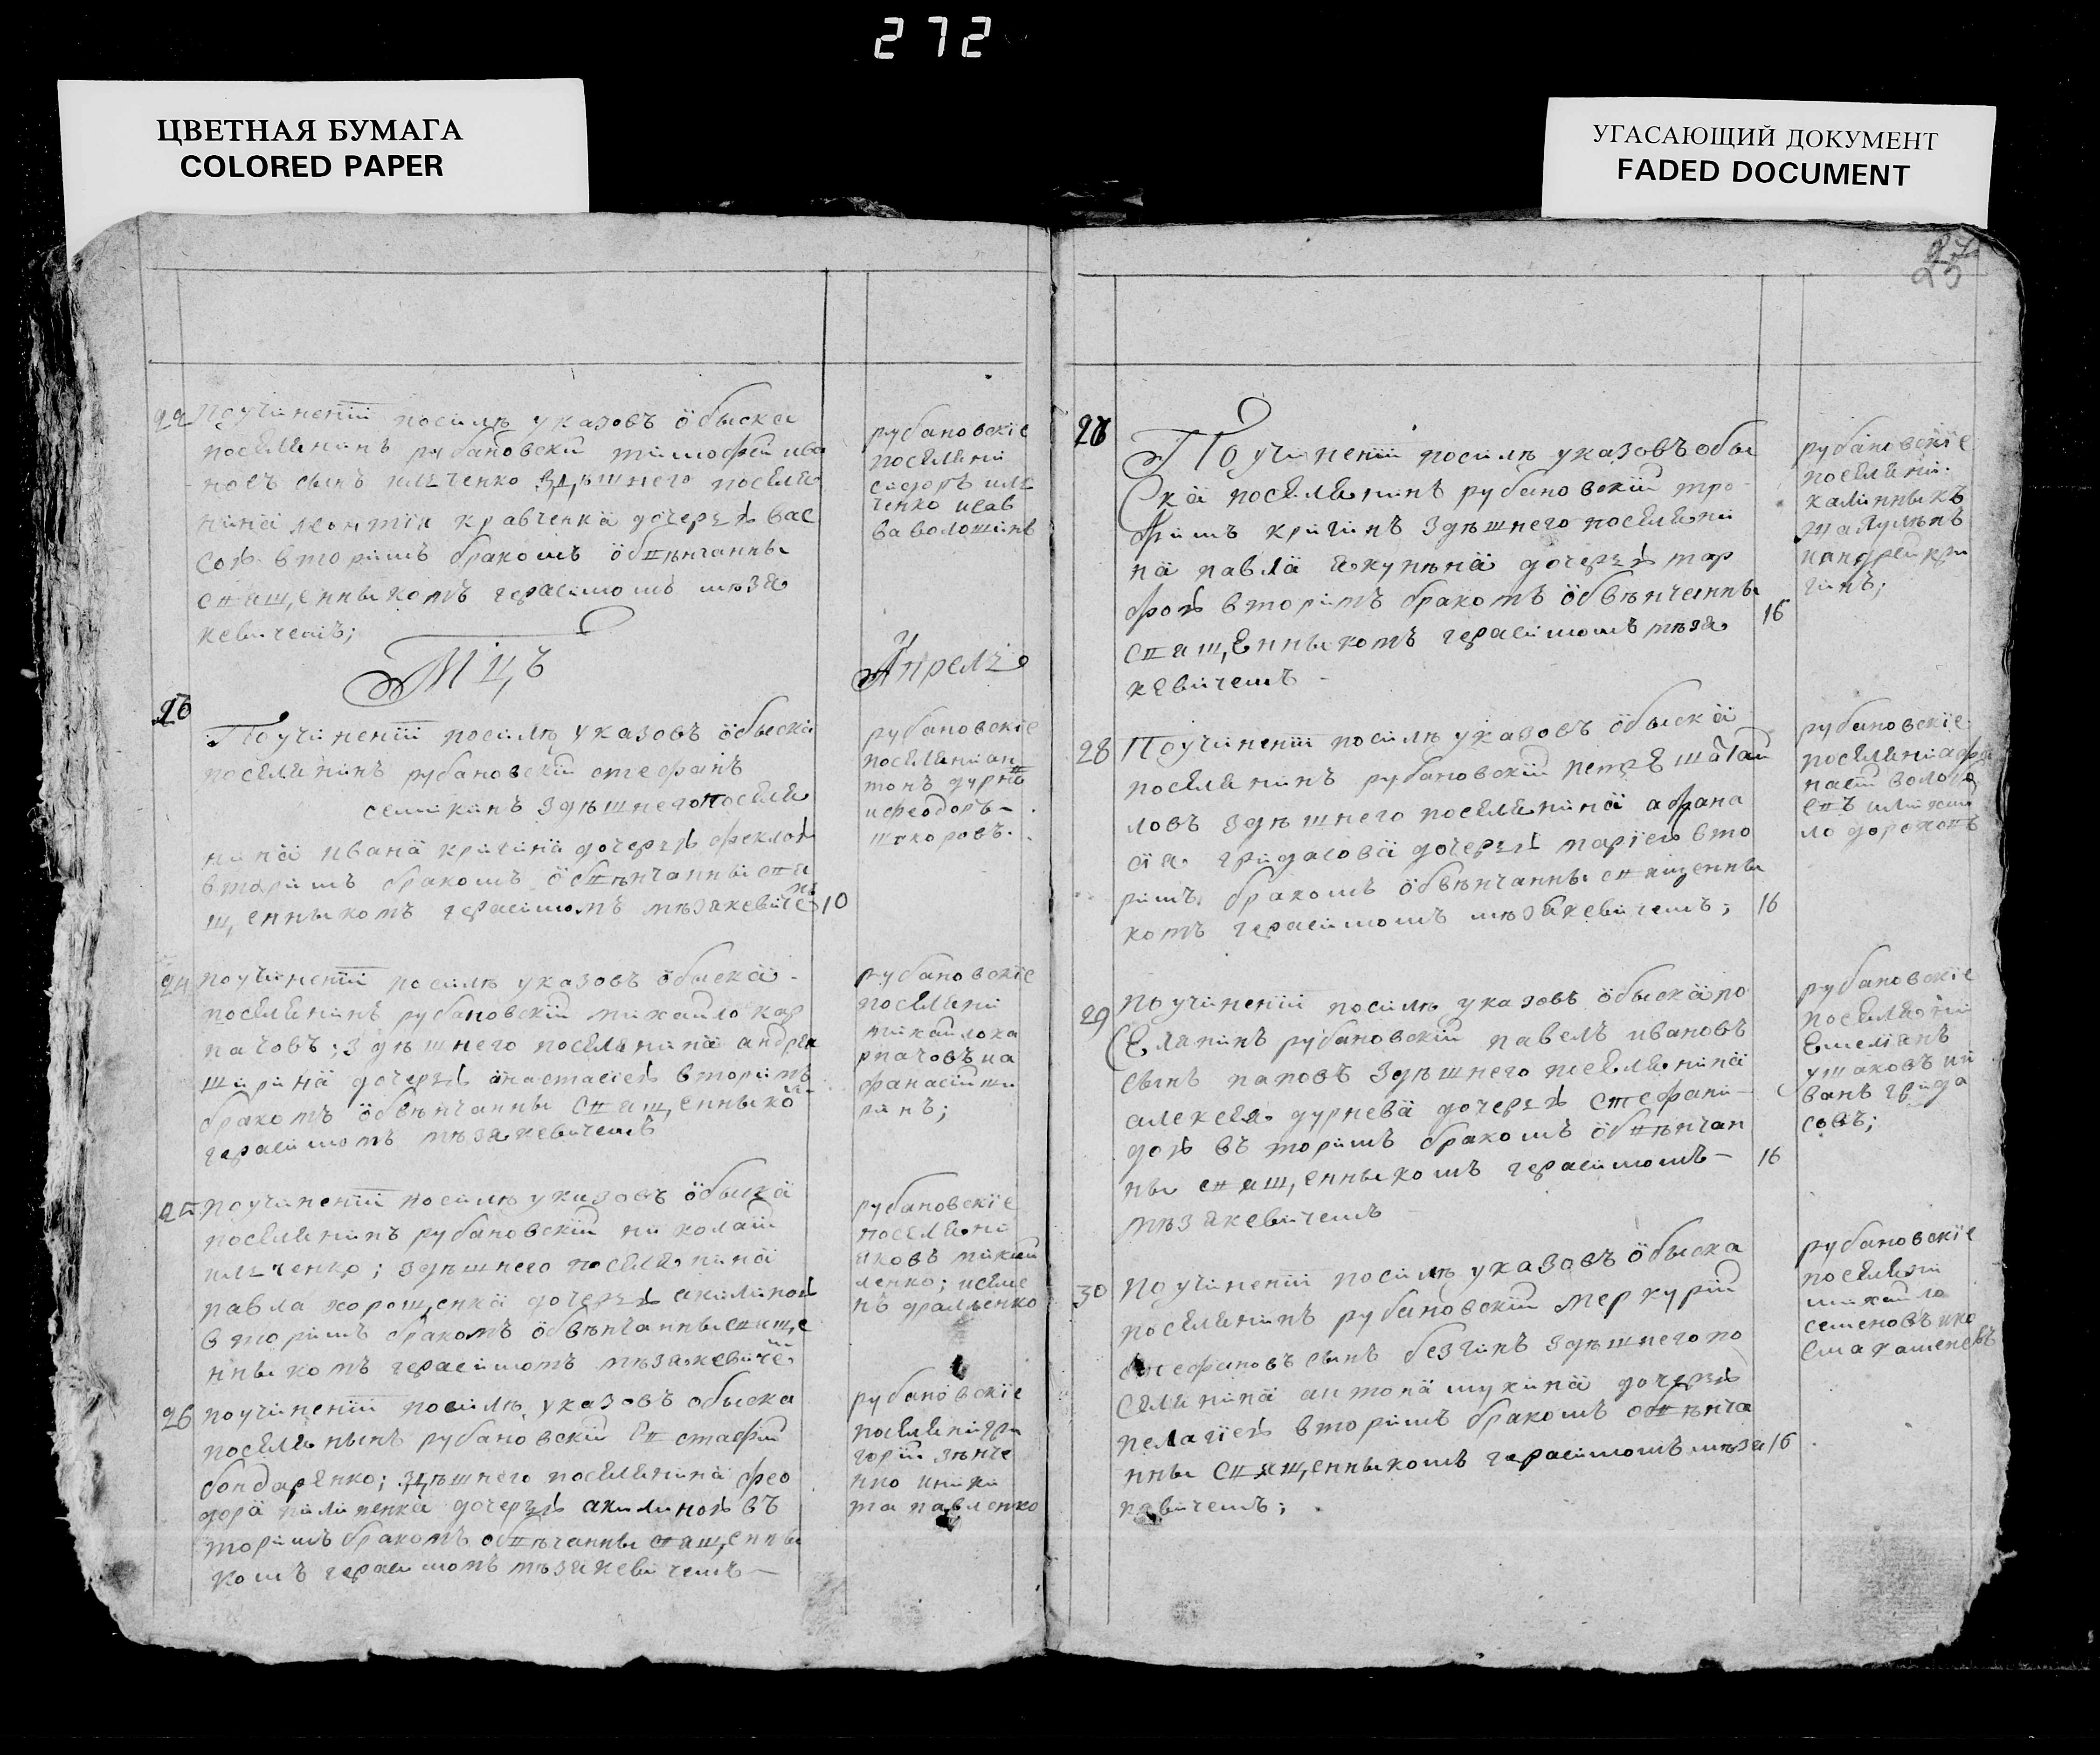 272
ЦВЕТНАЯ БУМАГА
COLORED PAPER
УГАСАЮЩИЙ ДОКУМЕНТ
FADED DOCUMENT
22
поучинении посилѣ указовъ обыска
поселянинъ рубановский тимофей ива
новъ сынъ илченко здѣшнего поселя
нина леонтия кравченка дочерью вас
сою вторимъ бракомъ обвѣнчанны
священныкомъ герасимомъ мѣзя
кевичемъ;
рубановские
поселяни
сидоръ иль
ченко исав
ва волошинъ
Мцъ
Апрелъ
Поучинении посилѣ указовъ обыска
поселянинъ рубановский стефанъ
семикинъ здѣшнего поселя
нина ивана кригина дочерью феклою
вторимъ бракомъ обвѣнчанны свя
щенныкомъ герасимомъ мѣзякевиче 10
рубановские
поселяни ан
тонъ дурнъ
ифеодоръ
шокоровъ.
24
поучинении посилѣ указовъ обыска
поселянинъ рубановский михайло кар
пачовъ; здѣшнего поселянина андрея
ширина дочерью анастасиею вторимъ
бракомъ обвѣнчанны священныко
герасимомъ мѣзякевичемъ
рубановские
поселяни
михайло ка
рпачовъ иа
фанасий ши
ринъ;
25
поучинении посилѣ указовъ обыска
поселянинъ рубановский николай
илченко; здѣшнего поселянина
павла хорощенка дочерью акилиною
вторимъ бракомъ обвѣнчанны свяще
нныкомъ герасимомъ мѣзякевиче
рубановские
поселяни
яковъ михай
ленко; исеме
нъ
26
поучинении посилѣ указовъ обыска
поселянынъ рубановский евстафий
бондаренко; здѣшнего поселянина фео
дора пилипенка дочерью акилиною въ
торимъ бракомъ обвѣчанны священны
комъ герасимомъ мѣзякевичемъ
рубановские
поселяни гри
горий зѣнче
нко иники
та павленко
27
Поучинении посилѣ указовъ обы
ска поселянинъ рубановский тро
фимъ кригинъ здѣшнего поселяни
на павла якунѣна дочерью мар
фою вторимъ бракомъ обвѣнченны
священныкомъ герасимомъ мѣзя
кевичемъ
16
рубановские
поселяни
калинныкъ
иандрей кри
гинъ;
28
поучинении посилѣ указовъ обыска
поселянинъ рубановский петръ шатай
ловъ здѣшнего поселянина афана
сия гридасова дочерью мариею вто
римъ бракомъ обвѣнчанны священны
комъ герасимомъ мѣзякевичемъ; 16
рубановские
поселяни афа
насий
29
поучинении посилѣ указовъ обыска по
селянинъ рубановский павелъ ивановъ
сынъ паповъ здѣшнего поселянина
алексея дурнева дочерью стефани
дою въторимъ бракомъ обвѣнчан
ны священныкомъ герасимомъ
мѣзякевичемъ
16
рубановские
поселяни
емелянъ
ушаковъ ии
ванъ грида
совъ;
30
поучинении посилѣ указовъ обыска
поселянинъ рубановский меркурий
стефановъ сынъ безгинъ здѣшнего по
селянина антона шукина дочерью
пелагиею вторимъ бракомъ обвѣнча
нны священныкомъ герасимомъ мѣзя 16
кевичемъ;
рубановские
поселяни
михайло
семеновъ ико
сма кашеневъ